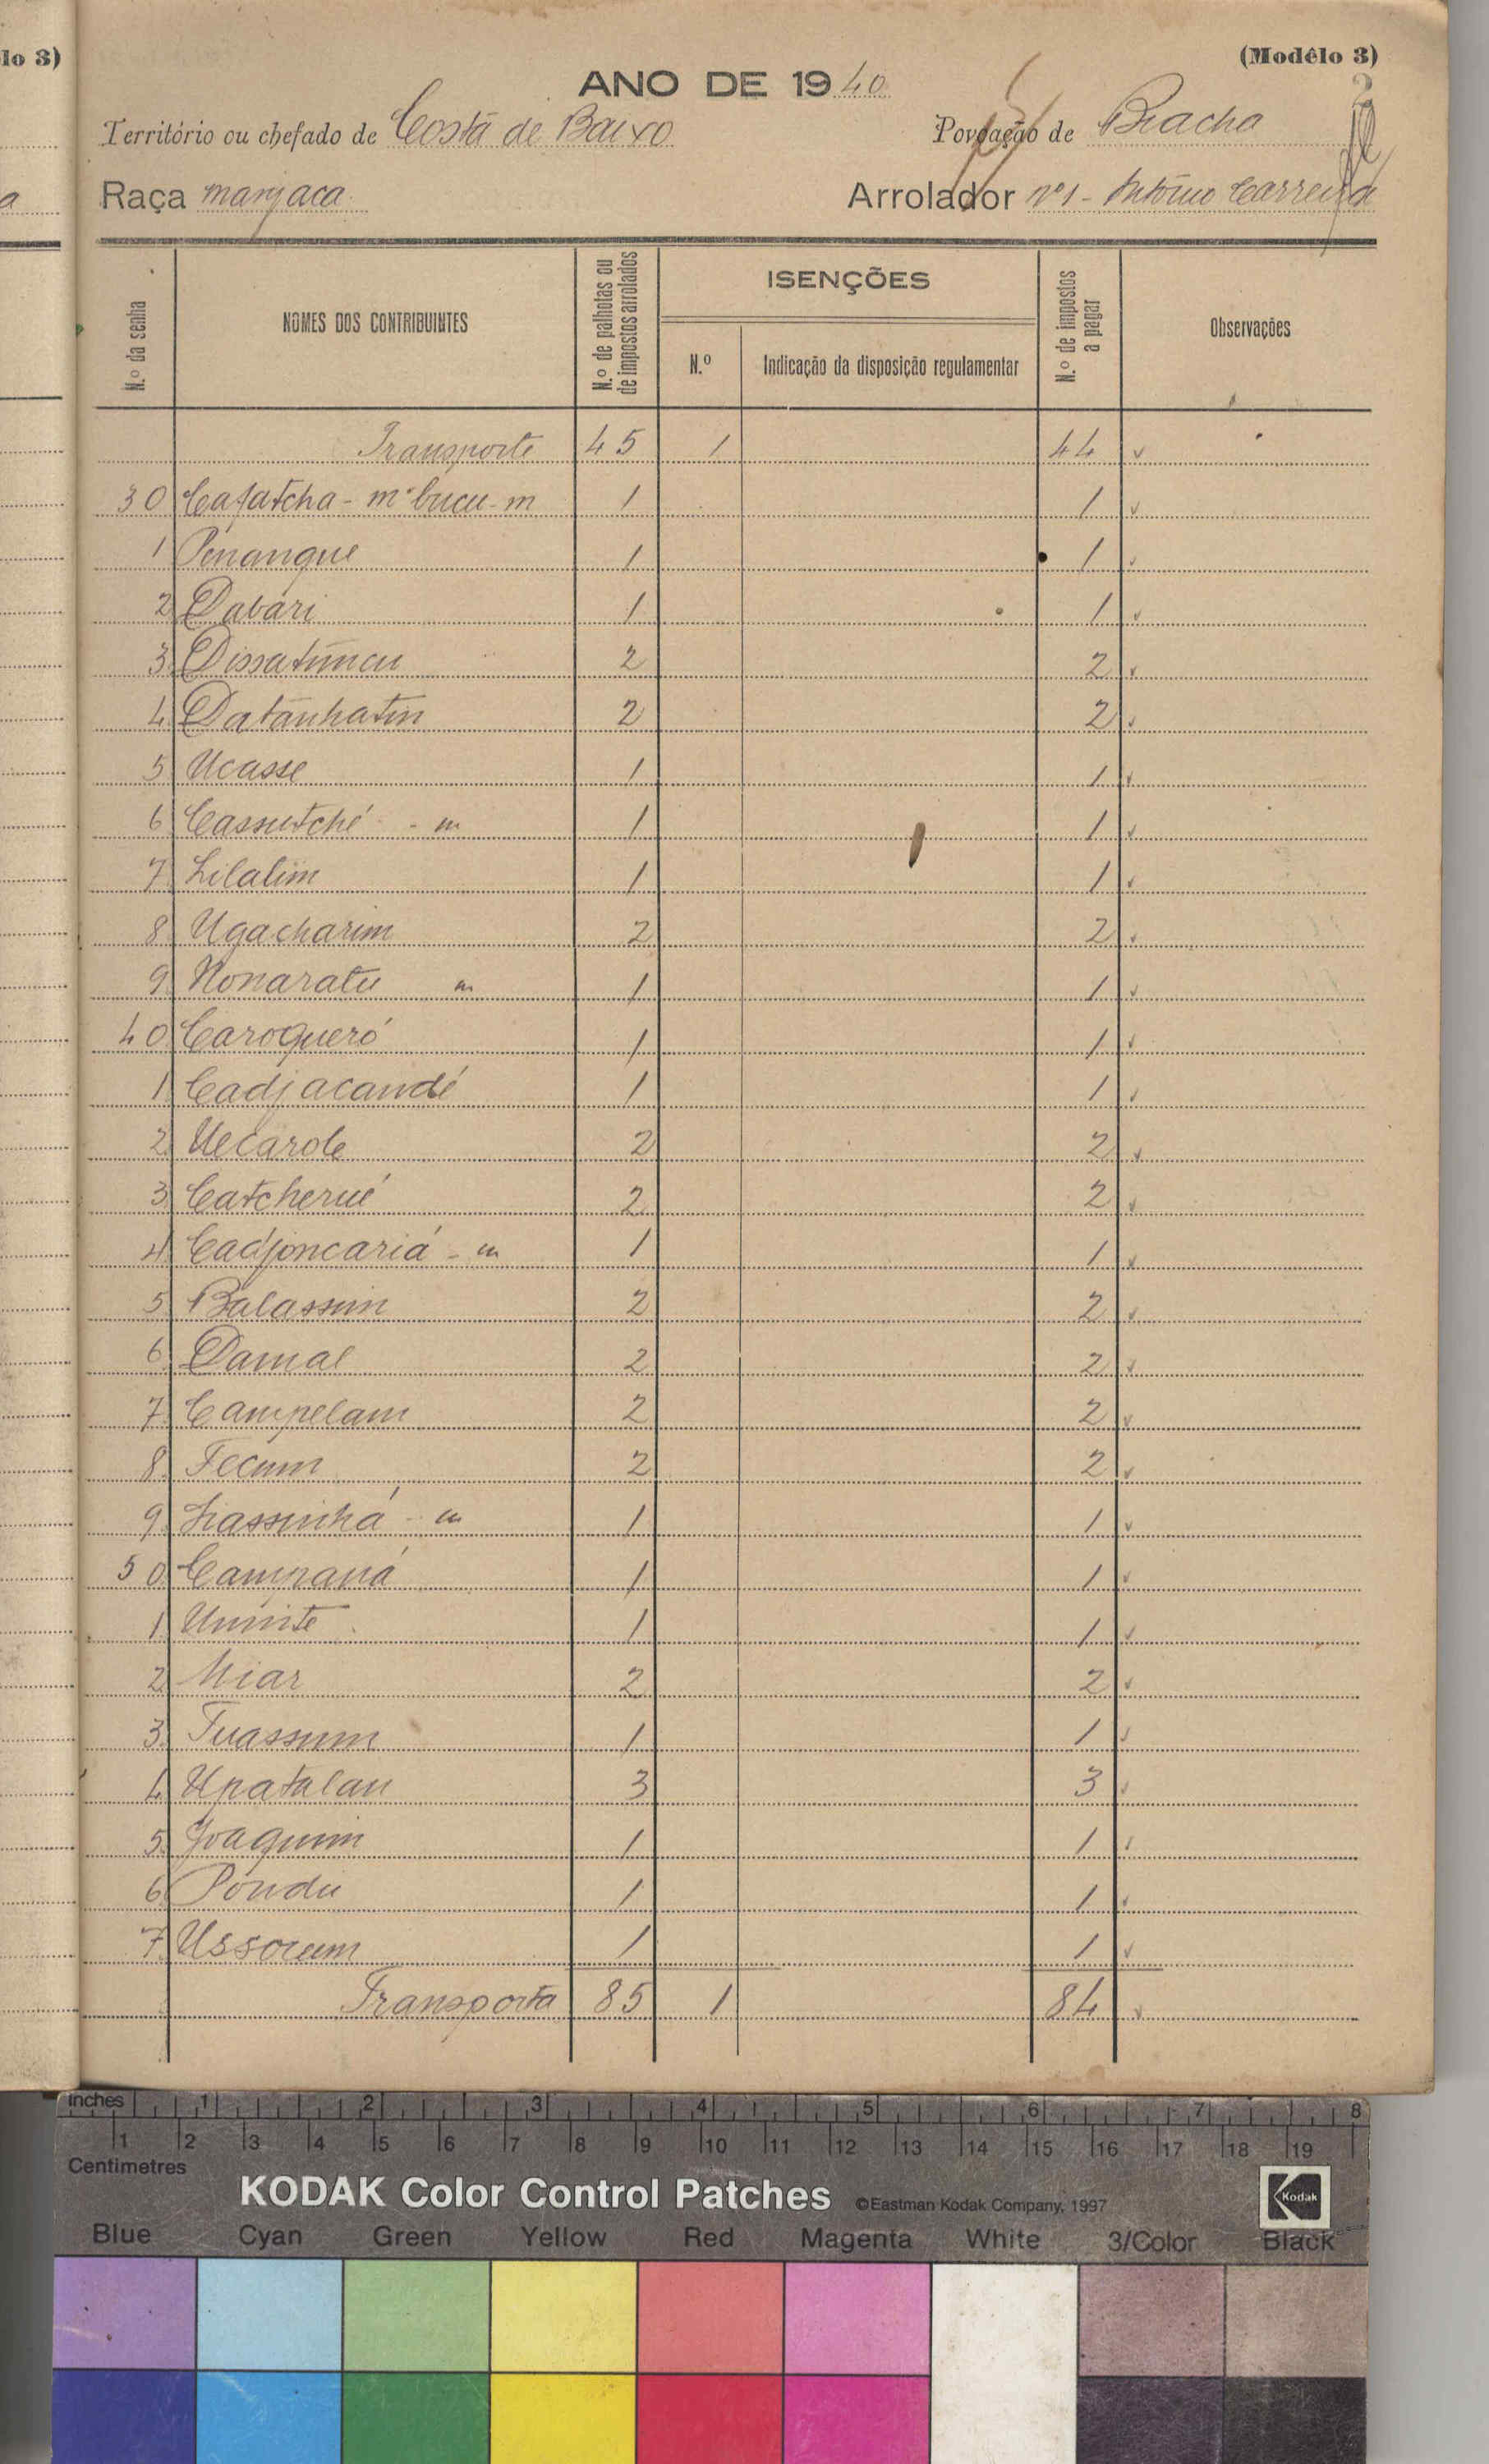 lo 3)
(Modêlo 3)
ANO DE 1940
Território ou chefado de Costa de Baixo Povoação de Bracha
Raça manjaca Arrolador nº1 - António Carreira
N.º da senha
NOMES DOS CONTRIBUINTES
N.º de palhotas ou de impostos arrolados
ISENÇÕES
N.º
Indicação da disposição regulamentar
N.º de impostos a pagar
Observações
Transporte 45 1 44
30 Cafatcha - m'bucu - m 1 1
1 Penangue 1 1
2 Dabari 1 1
3 Dissatuncu 2 2
4 Datanhatin 2 2
5 Ucasse 1 1
6 Cassutché - m 1 1
7 Lilalim 1 1
8 Ugacharim 2 2
9 Nonaratu m 1 1
40 Caroqueró 1 1
1 Cadjacandé 1 1
2 Uecarole 2 2
3 Catcherué 2 2
4 Cadjoncariá - m 1 1
5 Balassum 2 2
6 Damal 2 2
7 Campelam 2 2
8 Fecum 2 2
9 Liassinhá - m 1 1
50 Campaná 1 1
1 Uminte 1 1
2 Miar 2 2
3 Tuassum 1 1
4 Upatalan 3 3
5 Joaquim 1 1
6 Pondu 1 1
7 Ussorum 1 1
Transporta 85 1 84
inches 1 2 3 4 5 6 7 8
1 2 3 4 5 6 7 8 9 10 11 12 13 14 15 16 17 18 19
Centimetres
KODAK Color Control Patches ©Eastman Kodak Company, 1997 Kodak
Blue Cyan Green Yellow Red Magenta White 3/Color Black